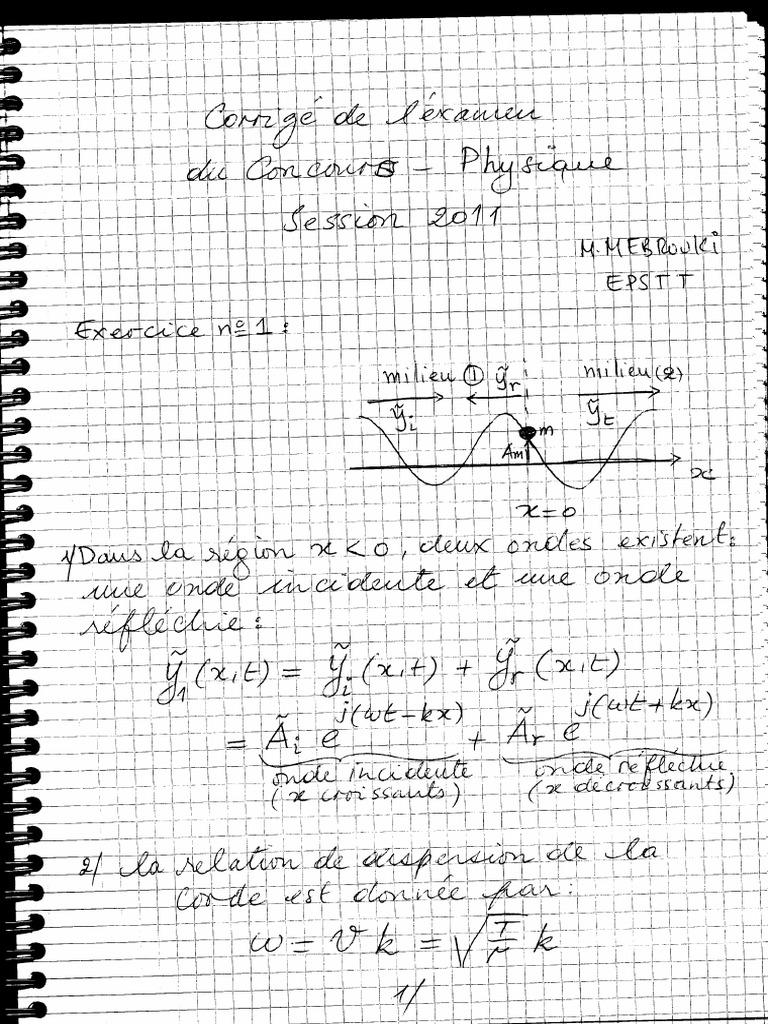 Corrigé de l'éxamen
du Concours - Physique
Session 2011
M. MEBROUKI
EPSTT
Exercice nº1 :
milieu ① ỹr milieu (2)
ỹi ỹt
m
Am
x
x=0
1/ Dans la région x < 0, deux ondes existent:
une onde incidente et une onde
réfléchie :
ỹ₁(x,t) = ỹi(x,t) + ỹr(x,t)
= Ãi e^j(ωt-kx) + Ãr e^j(ωt+kx)
onde incidente onde réfléchie
(x croissants) (x décroissants)
2/ la relation de dispersion de la
Corde est donnée par:
ω = v k = √(T/μ) k
1/